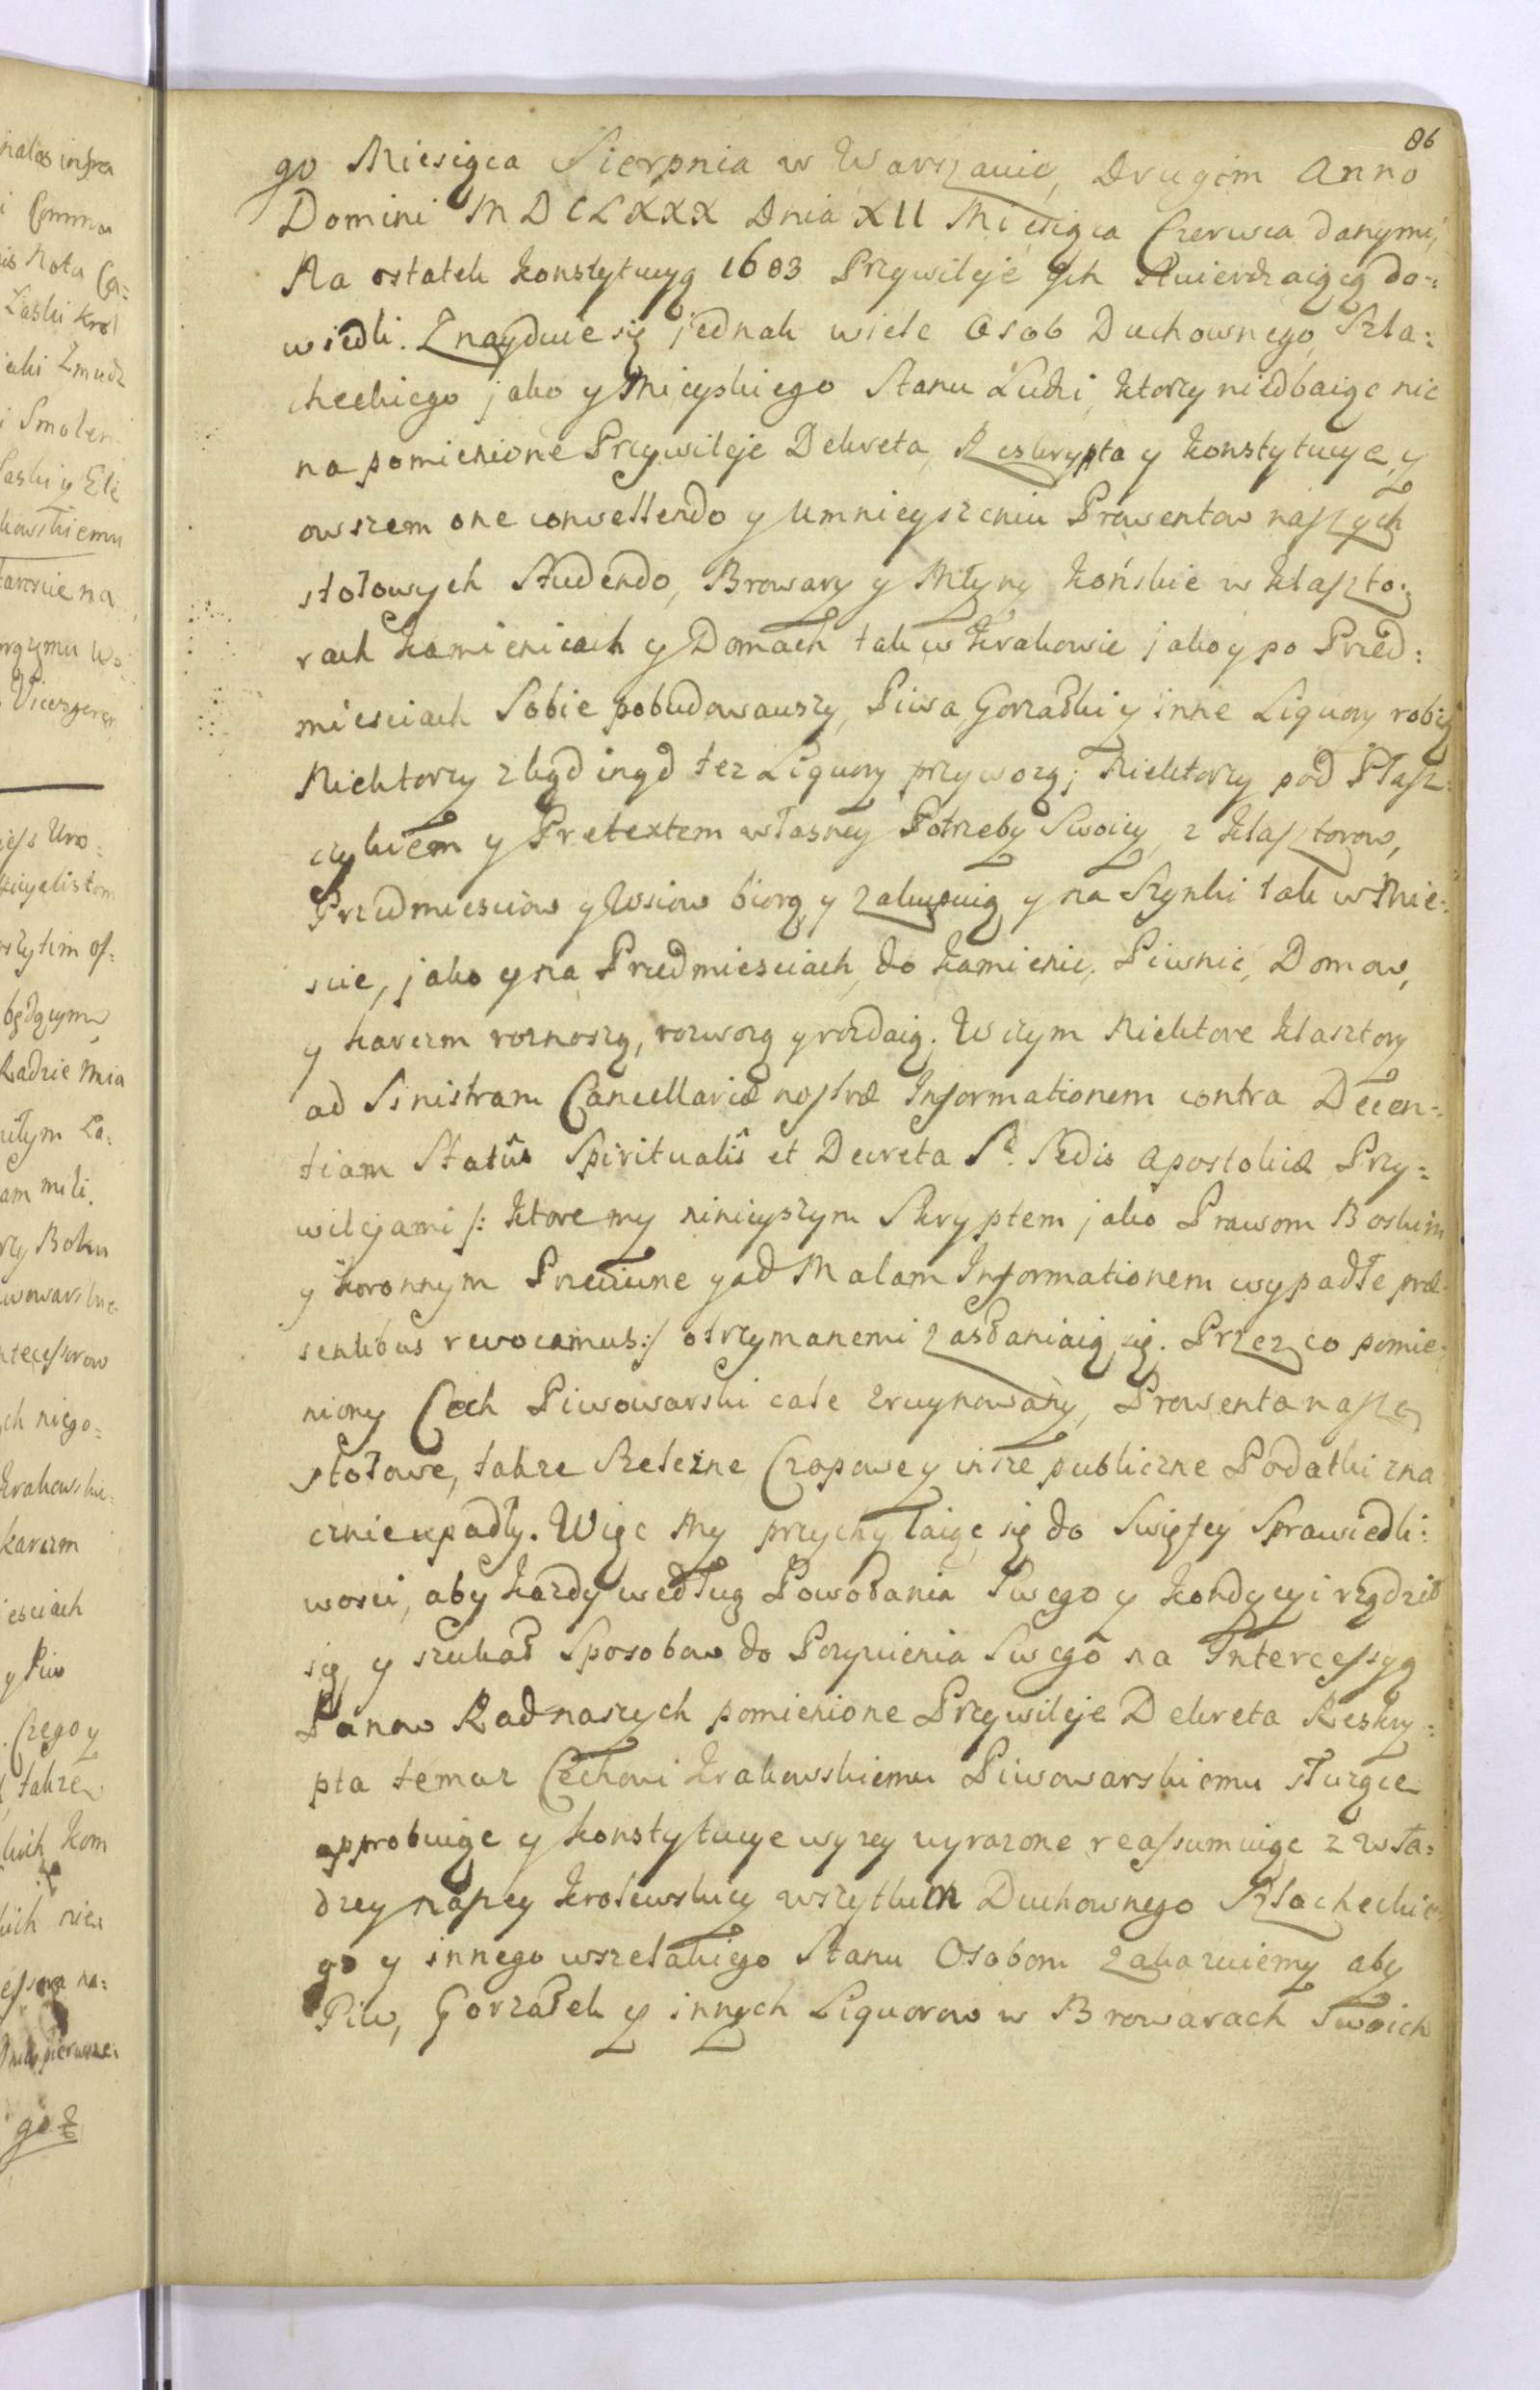 86
go Miesiąca Sierpnia w Warszawie, Drugim Anno
Domini MDCLXXX Dnia XII Miesiąca Czerwca danymi,
Na ostatek konstytucyą 1683 Przywileje Ich stwierdzaiącą do=
wiedli. Znayduie się jednak wiele Osob Duchownego, Szla=
checkiego jako y Mieyskiego Stanu Ludzi, ktorzy niedbaiąc nic
na pomienione Przywileje Dekreta, Reskrypta y konstytucye, y
owszem one convellendo y Umnieyszeniu Prowentow naszych
stołowych studendo, Browary y Młyny końskie w klaszto=
rach kamienicach y Domach tak w krakowie jako y po Przed=
miesciach Sobie pobudowawszy, Piwa, Gorzałki y inne Liquory robią
Niektorzy zkąd inąd tez Liquory przywozą; Niektorzy pod Płasz=
czykiem y Pretextem własney Potrzeby Swoiey, z klasztorow,
Przedmiesciow y Wsiow biorą y zakupuią y na Szynki tak w Mie=
scie, jako y na Przedmiesciach, do kamienic, Piwnic, Domow,
y karczm roznoszą, rozwozą y rozdaią. W czym Niektore klasztory
ad Sinistram Cancellariæ nostræ Informationem contra Decen=
tiam Statûs Spiritualis et Decreta S. Sedis Apostolicæ Przy=
wilejami /: ktore my ninieyszym Skryptem jako Prawom Boskim
y koronnym Przeciwne y ad Malam Informationem wypadłe præ=
sentibus revocamus :/ otrzymanemi zasłaniaią się. Przez co pomie=
niony Cech Piwowarski cale zruynowany, Prowenta nasze
stołowe, także Szelezne Czopowe y insze publiczne Podatki zna
cznie upadły. Więc My przychylaiąc się do Swiętey Sprawiedli=
wosci, aby kazdy według Powołania Swego y kondycyi rządził
się, y szukał Sposobow do Pozywienia Swego na Intercessyą
Panow Rad naszych pomienione Przywileje Dekreta Reskry=
pta temuz Cechowi krakowskiemu Piwowarskiemu służące
approbuiąc y konstytucye wyzey wyrazone reassumuiąc z wła=
dzey naszey krolewskiey wszytkim Duchownego Szlacheckie=
go y innego wszelakiego Stanu Osobom zakazuiemy aby
Piw, Gorzałek y innych Liquorow w Browarach Swoich